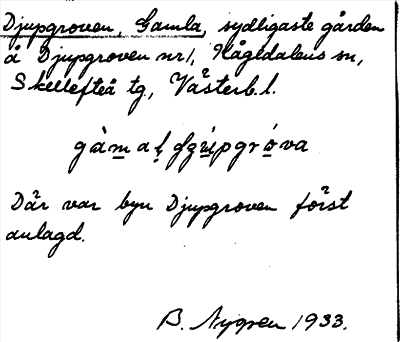 Djupgroven, Gamla, sydligaste gården
å Djupgroven nr 1, Kågedalens sn,
Skellefteå tg, Västerb. l.
Där var byn Djupgroven först
anlagd.
B. Nygren 1933.